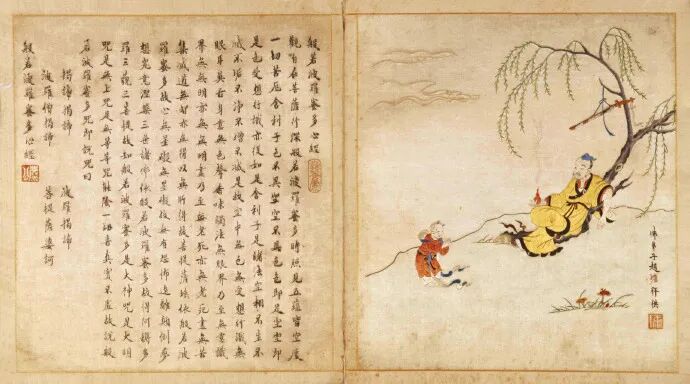 佛弟子趙雍拜供
般若波羅蜜多心經
觀自在菩薩行深般若波羅蜜多時照見五蘊皆空度
一切苦厄舍利子色不異空空不異色色即是空空即
是色受想行識亦復如是舍利子是諸法空相不生不
滅不垢不淨不增不減是故空中無色無受想行識無
眼耳鼻舌身意無色聲香味觸法無眼界乃至無意識
界無無明亦無無明盡乃至無老死亦無老死盡無苦
集滅道無智亦無得以無所得故菩提薩埵依般若波
羅蜜多故心無罣礙無罣礙故無有恐怖遠離顛倒夢
想究竟涅槃三世諸佛依般若波羅蜜多故得阿耨多
羅三藐三菩提故知般若波羅蜜多是大神咒是大明
咒是無上咒是無等等咒能除一切苦真實不虛故說般
若波羅蜜多咒即說咒曰
揭諦揭諦 波羅揭諦
波羅僧揭諦 菩提薩婆訶
般若波羅蜜多心經